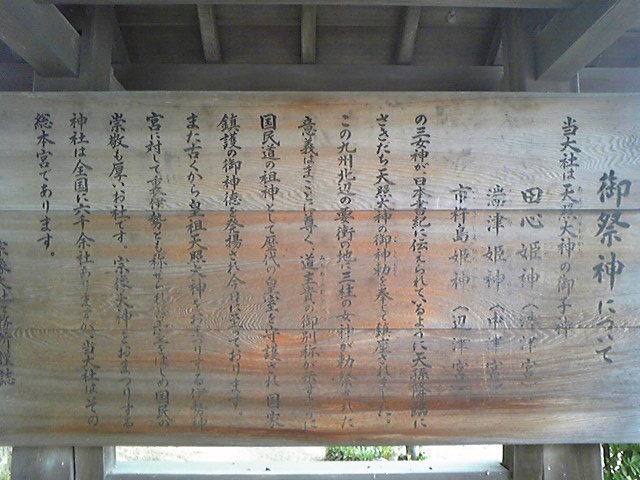 御祭神について
当大社は天照大神の御子神
田心姫神（沖津宮）
湍津姫神（中津宮）
市杵島姫神（辺津宮）
の三女神が、日本書紀に伝えられているように天孫降臨に
さきだち天照大神の御神勅を奉じて鎮座されました。
この九州北辺の要衝の地に三柱の女神が勅祭された
意義はまことに尊く、道主貴の御別称が示すように
国民道の祖神として歴代の皇室を守護され、国家
鎮護の御神徳を発揚され今日に至っております。
また古くから皇祖天照大神をおまつりする伊勢神
宮に対して裏伊勢とも称せられ皇室をはじめ国民の
崇敬も厚いお社です。宗像大神をおまつりする
神社は全国に六千余社ありますが、当大社はその
総本宮であります。
宗像大社